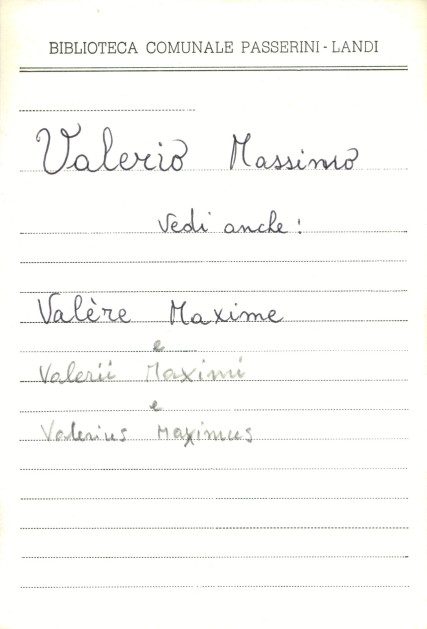 BIBLIOTECA COMUNALE PASSERINI - LANDI
Valerio Massimo
Vedi anche:
Valère Maxime
e
Valerii Maximi
e
Valerius Maximus